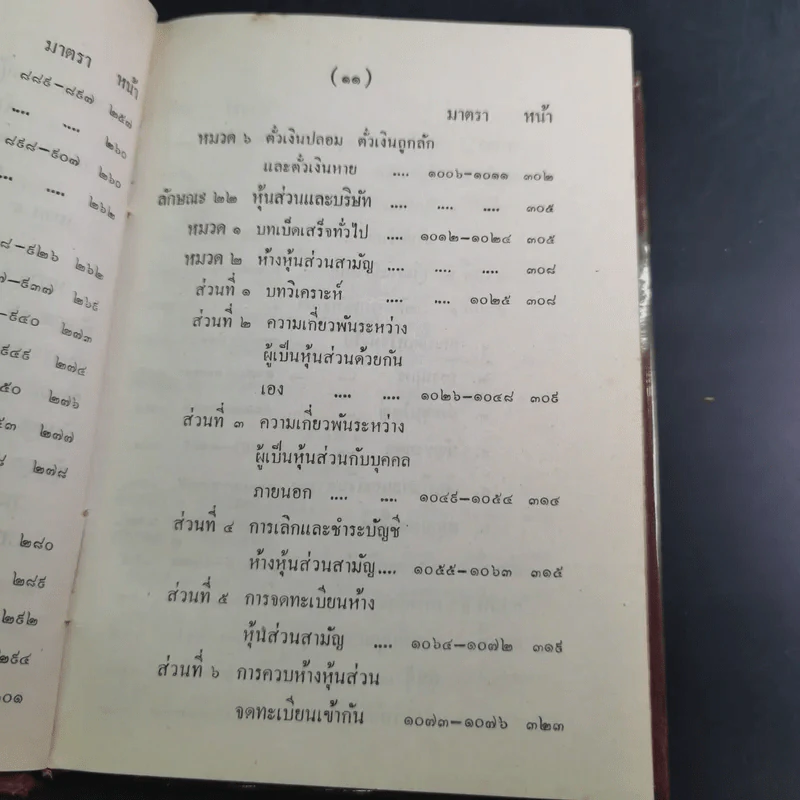 มาตรา หน้า
๘๘๙–๘๙๗ ๒๕๑
.... .... ๒๖๐
๘๙๘–๙๐๗ ๒๖๐
.... ๒๖๒
๘–๙๒๖ ๒๖๒
๗–๙๓๗ ๒๖๙
–๙๔๐ ๒๗๓
๙๔๙ ๒๗๔
๕๐ ๒๗๖
๕๓ ๒๗๗
๘ ๒๗๘
๒๘๐
๒๘๙
๒๙๒
๒๙๔
๓๐๑
(๑๑)
มาตรา หน้า
หมวด ๖ ตั๋วเงินปลอม ตั๋วเงินถูกลัก
และตั๋วเงินหาย .... ๑๐๐๖–๑๐๑๑ ๓๐๒
ลักษณะ ๒๒ หุ้นส่วนและบริษัท .... .... .... ๓๐๕
หมวด ๑ บทเบ็ดเสร็จทั่วไป .... ๑๐๑๒–๑๐๒๔ ๓๐๕
หมวด ๒ ห้างหุ้นส่วนสามัญ .... .... .... ๓๐๘
ส่วนที่ ๑ บทวิเคราะห์ .... .... ๑๐๒๕ ๓๐๘
ส่วนที่ ๒ ความเกี่ยวพันระหว่าง
ผู้เป็นหุ้นส่วนด้วยกัน
เอง .... .... ๑๐๒๖–๑๐๔๘ ๓๐๙
ส่วนที่ ๓ ความเกี่ยวพันระหว่าง
ผู้เป็นหุ้นส่วนกับบุคคล
ภายนอก .... .... ๑๐๔๙–๑๐๕๔ ๓๑๔
ส่วนที่ ๔ การเลิกและชำระบัญชี
ห้างหุ้นส่วนสามัญ.... ๑๐๕๕–๑๐๖๓ ๓๑๕
ส่วนที่ ๕ การจดทะเบียนห้าง
หุ้นส่วนสามัญ .... ๑๐๖๔–๑๐๗๒ ๓๑๙
ส่วนที่ ๖ การควบห้างหุ้นส่วน
จดทะเบียนเข้ากัน ๑๐๗๓–๑๐๗๖ ๓๒๓